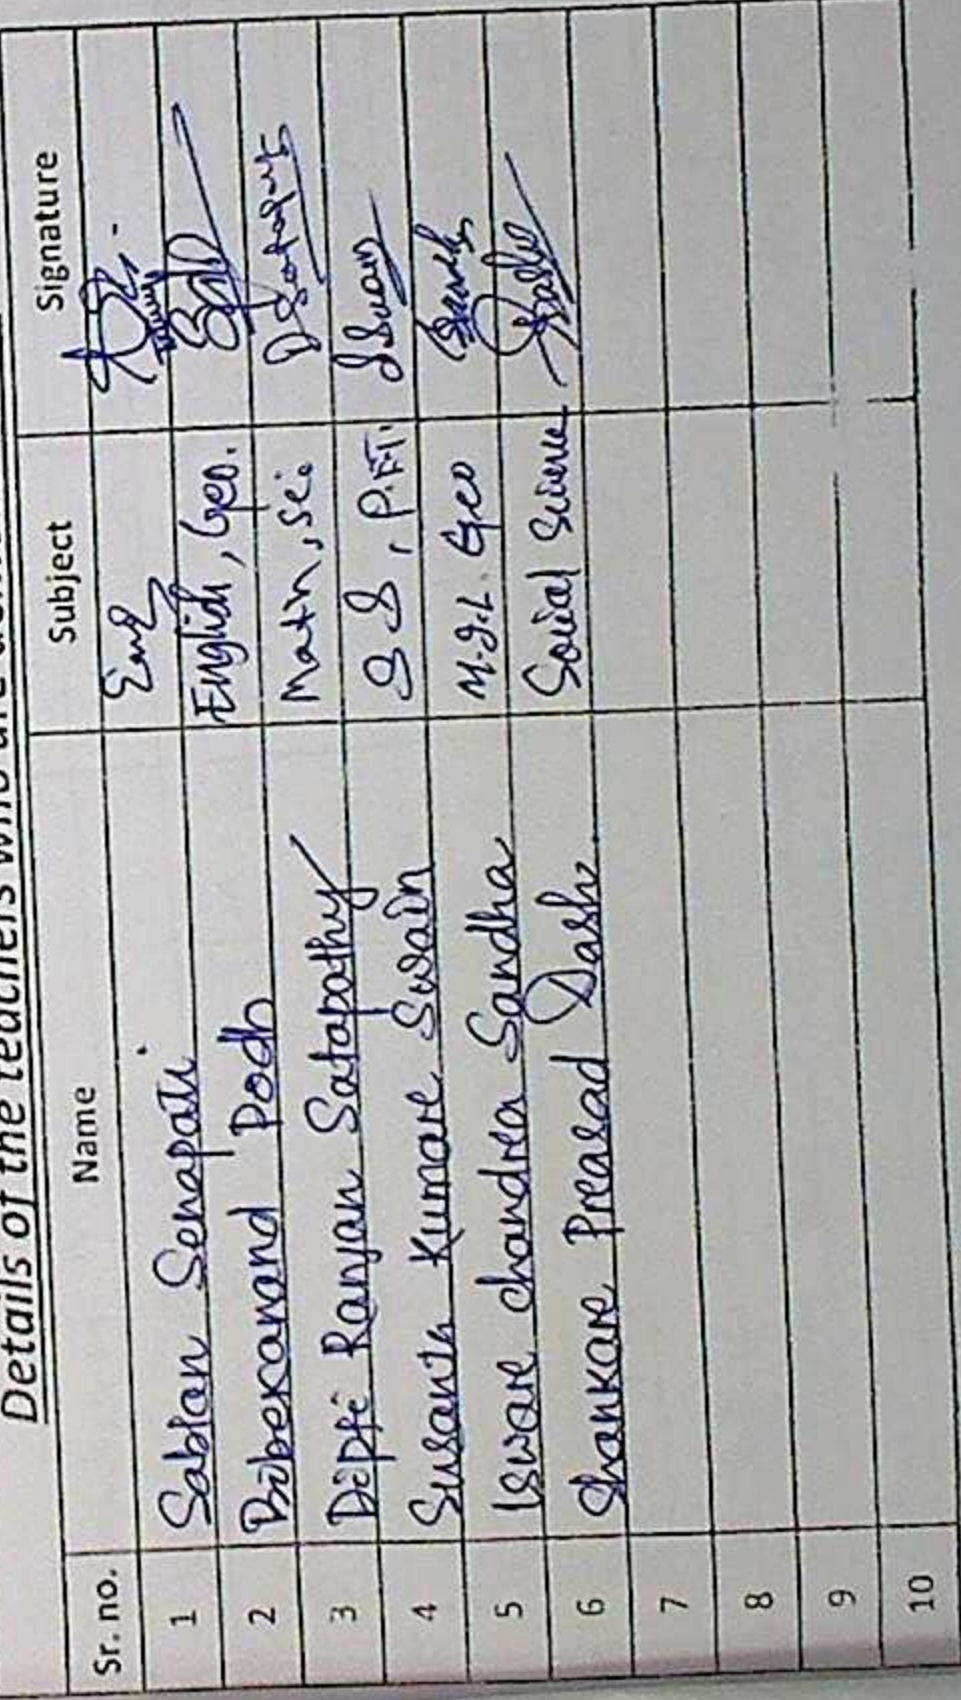 Details of the teachers who are
Sr. no. Name Subject Signature
1 Sabian Senapati Eng
2 Bibekanand Podh English, Geo.
3 Dipti Ranjan Satapathy Math, Sci. DSatapathy
4 Susanta Kumare Swain S S, P.E.T. SSwain
5 Isware chandra Sandha M.I.L. Geo
6 Shankare Preasad Dash Social Science
7
8
9
10